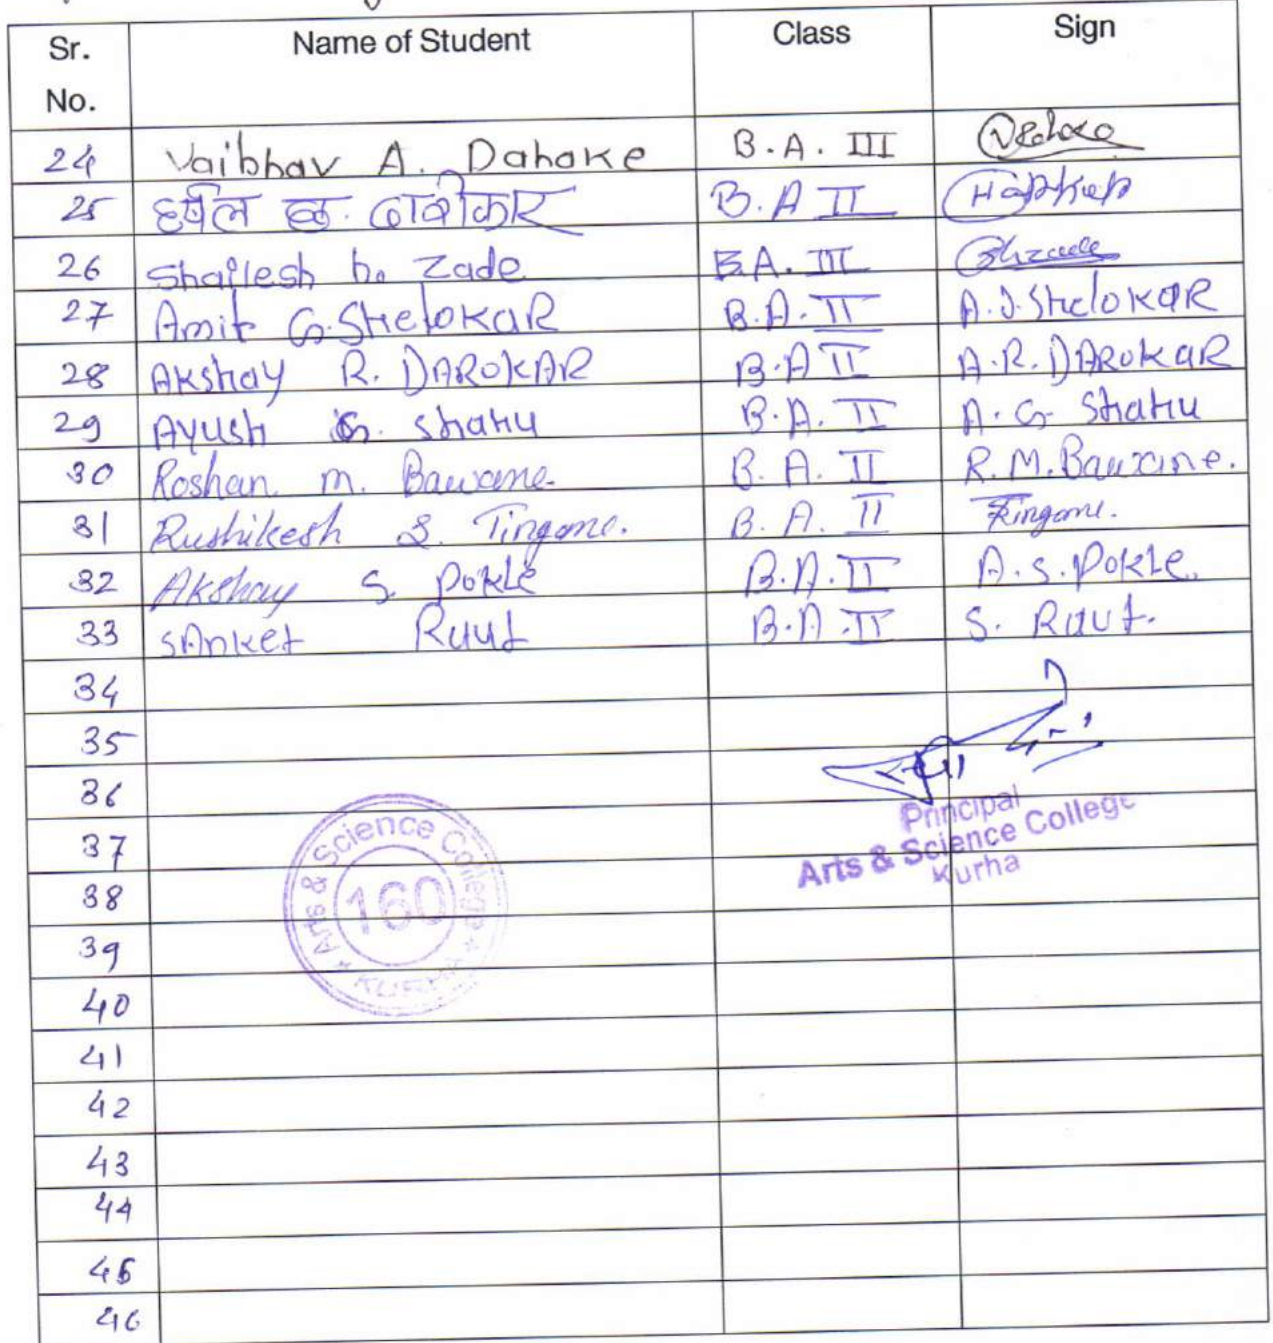 Sr. No. Name of Student Class Sign
24 Vaibhav A. Dahake B.A. III
25 हर्षल छ. ढावीकार B.A II
26 Shailesh b. Zade B.A. III
27 Amit G. Shelokar B.A. II A.J. Shelokar
28 Akshay R. DAROKAR B.A II A.R. DAROKAR
29 Ayush G. shahu B.A. II A. G. Shahu
30 Roshan. m. Bawane. B. A. II R. M. Bawane.
31 Rushikesh S. Tingane. B. A. II Tingane.
32 Akshay S. Pokle B.A. II A. S. Pokle.
33 SAnket Raut B.A. II S. Raut.
34
35
36
Principal
37
Arts & Science College
Kurha
Arts & Science College
160
KURHA
38
39
40
41
42
43
44
45
46